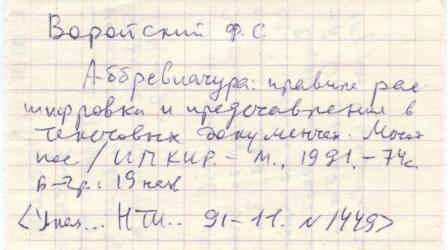 Воройский Ф. С.
Аббревиатура: правила рас-
шифровки и представления в
текстовых документах. Метод
пос / ИПКИР. – М., 1991. – 74с.
Б-гр.: 19 назв
<Указ... НТИ.. 91-11. N 1449>